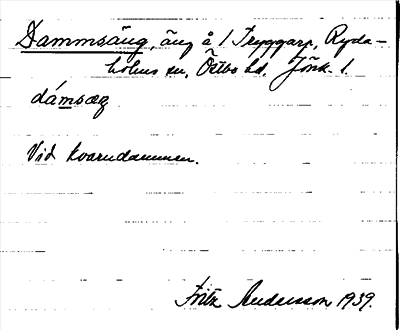 Dammsäng, äng å 1 Tryggarp, Ryda-
holms sn, Östbo hd. Jönk. l.
dámsæg
Vid kvarndammen.
Fritz Andersson 1939.